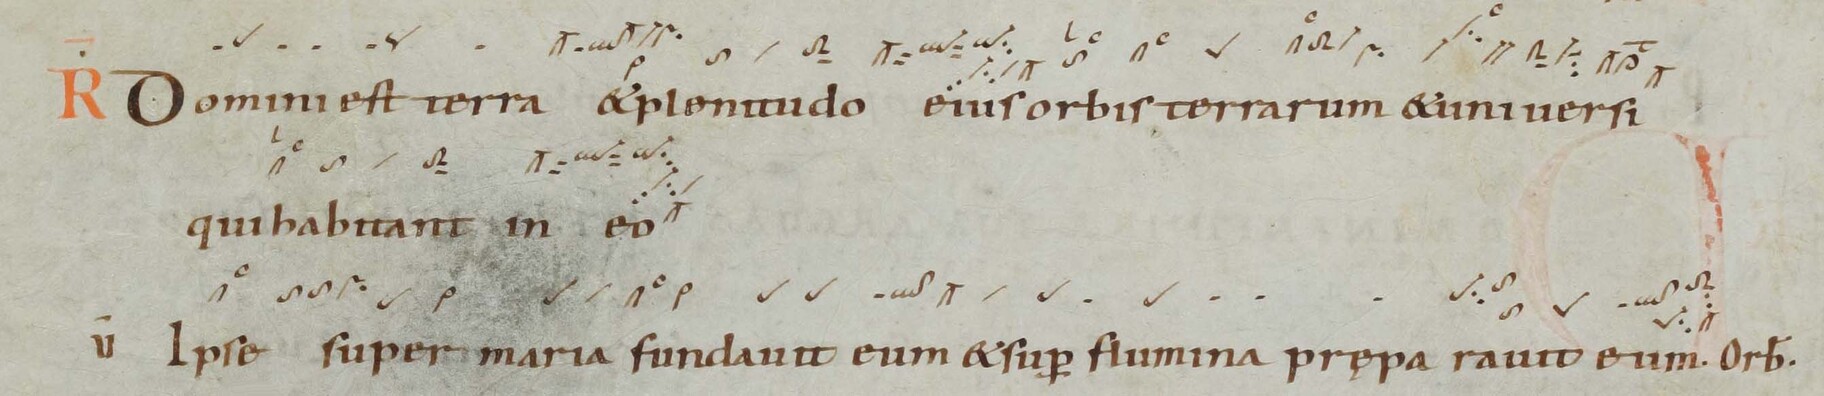 R Domini est terra &plenitudo eius orbis terrarum &uniuersi
qui habitant in eo
v̄ Ipse super maria fundauit eum &sup̲ flumina prępa rauit eum. Orb̄.